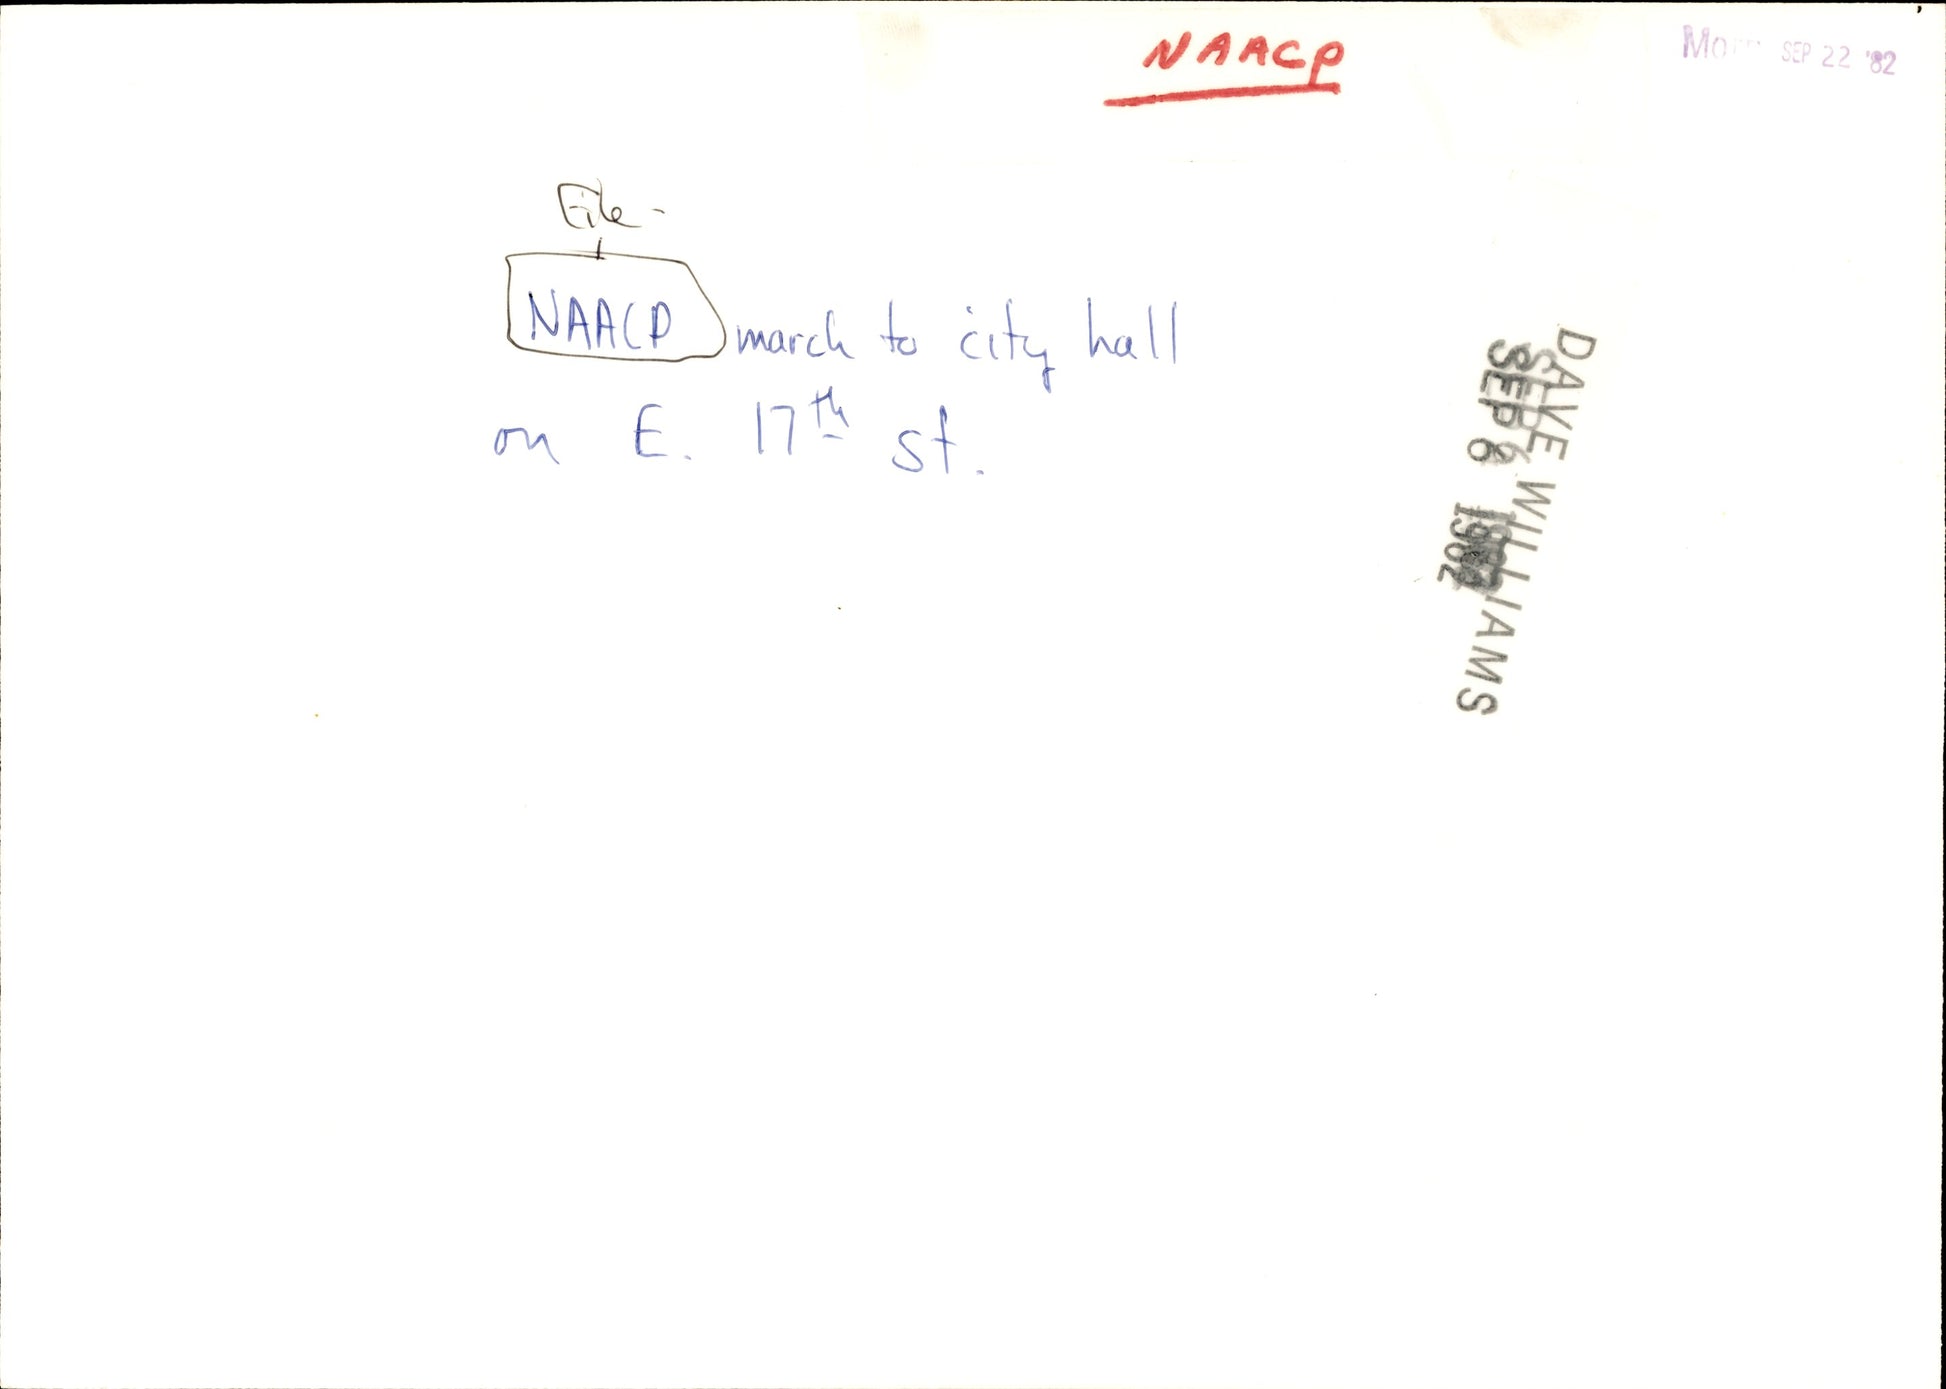 NAACP
SEP 22 '82
File -
NAACP march to city hall
on E. 17th st.
DAVE WILLIAMS
SEP 8 1982